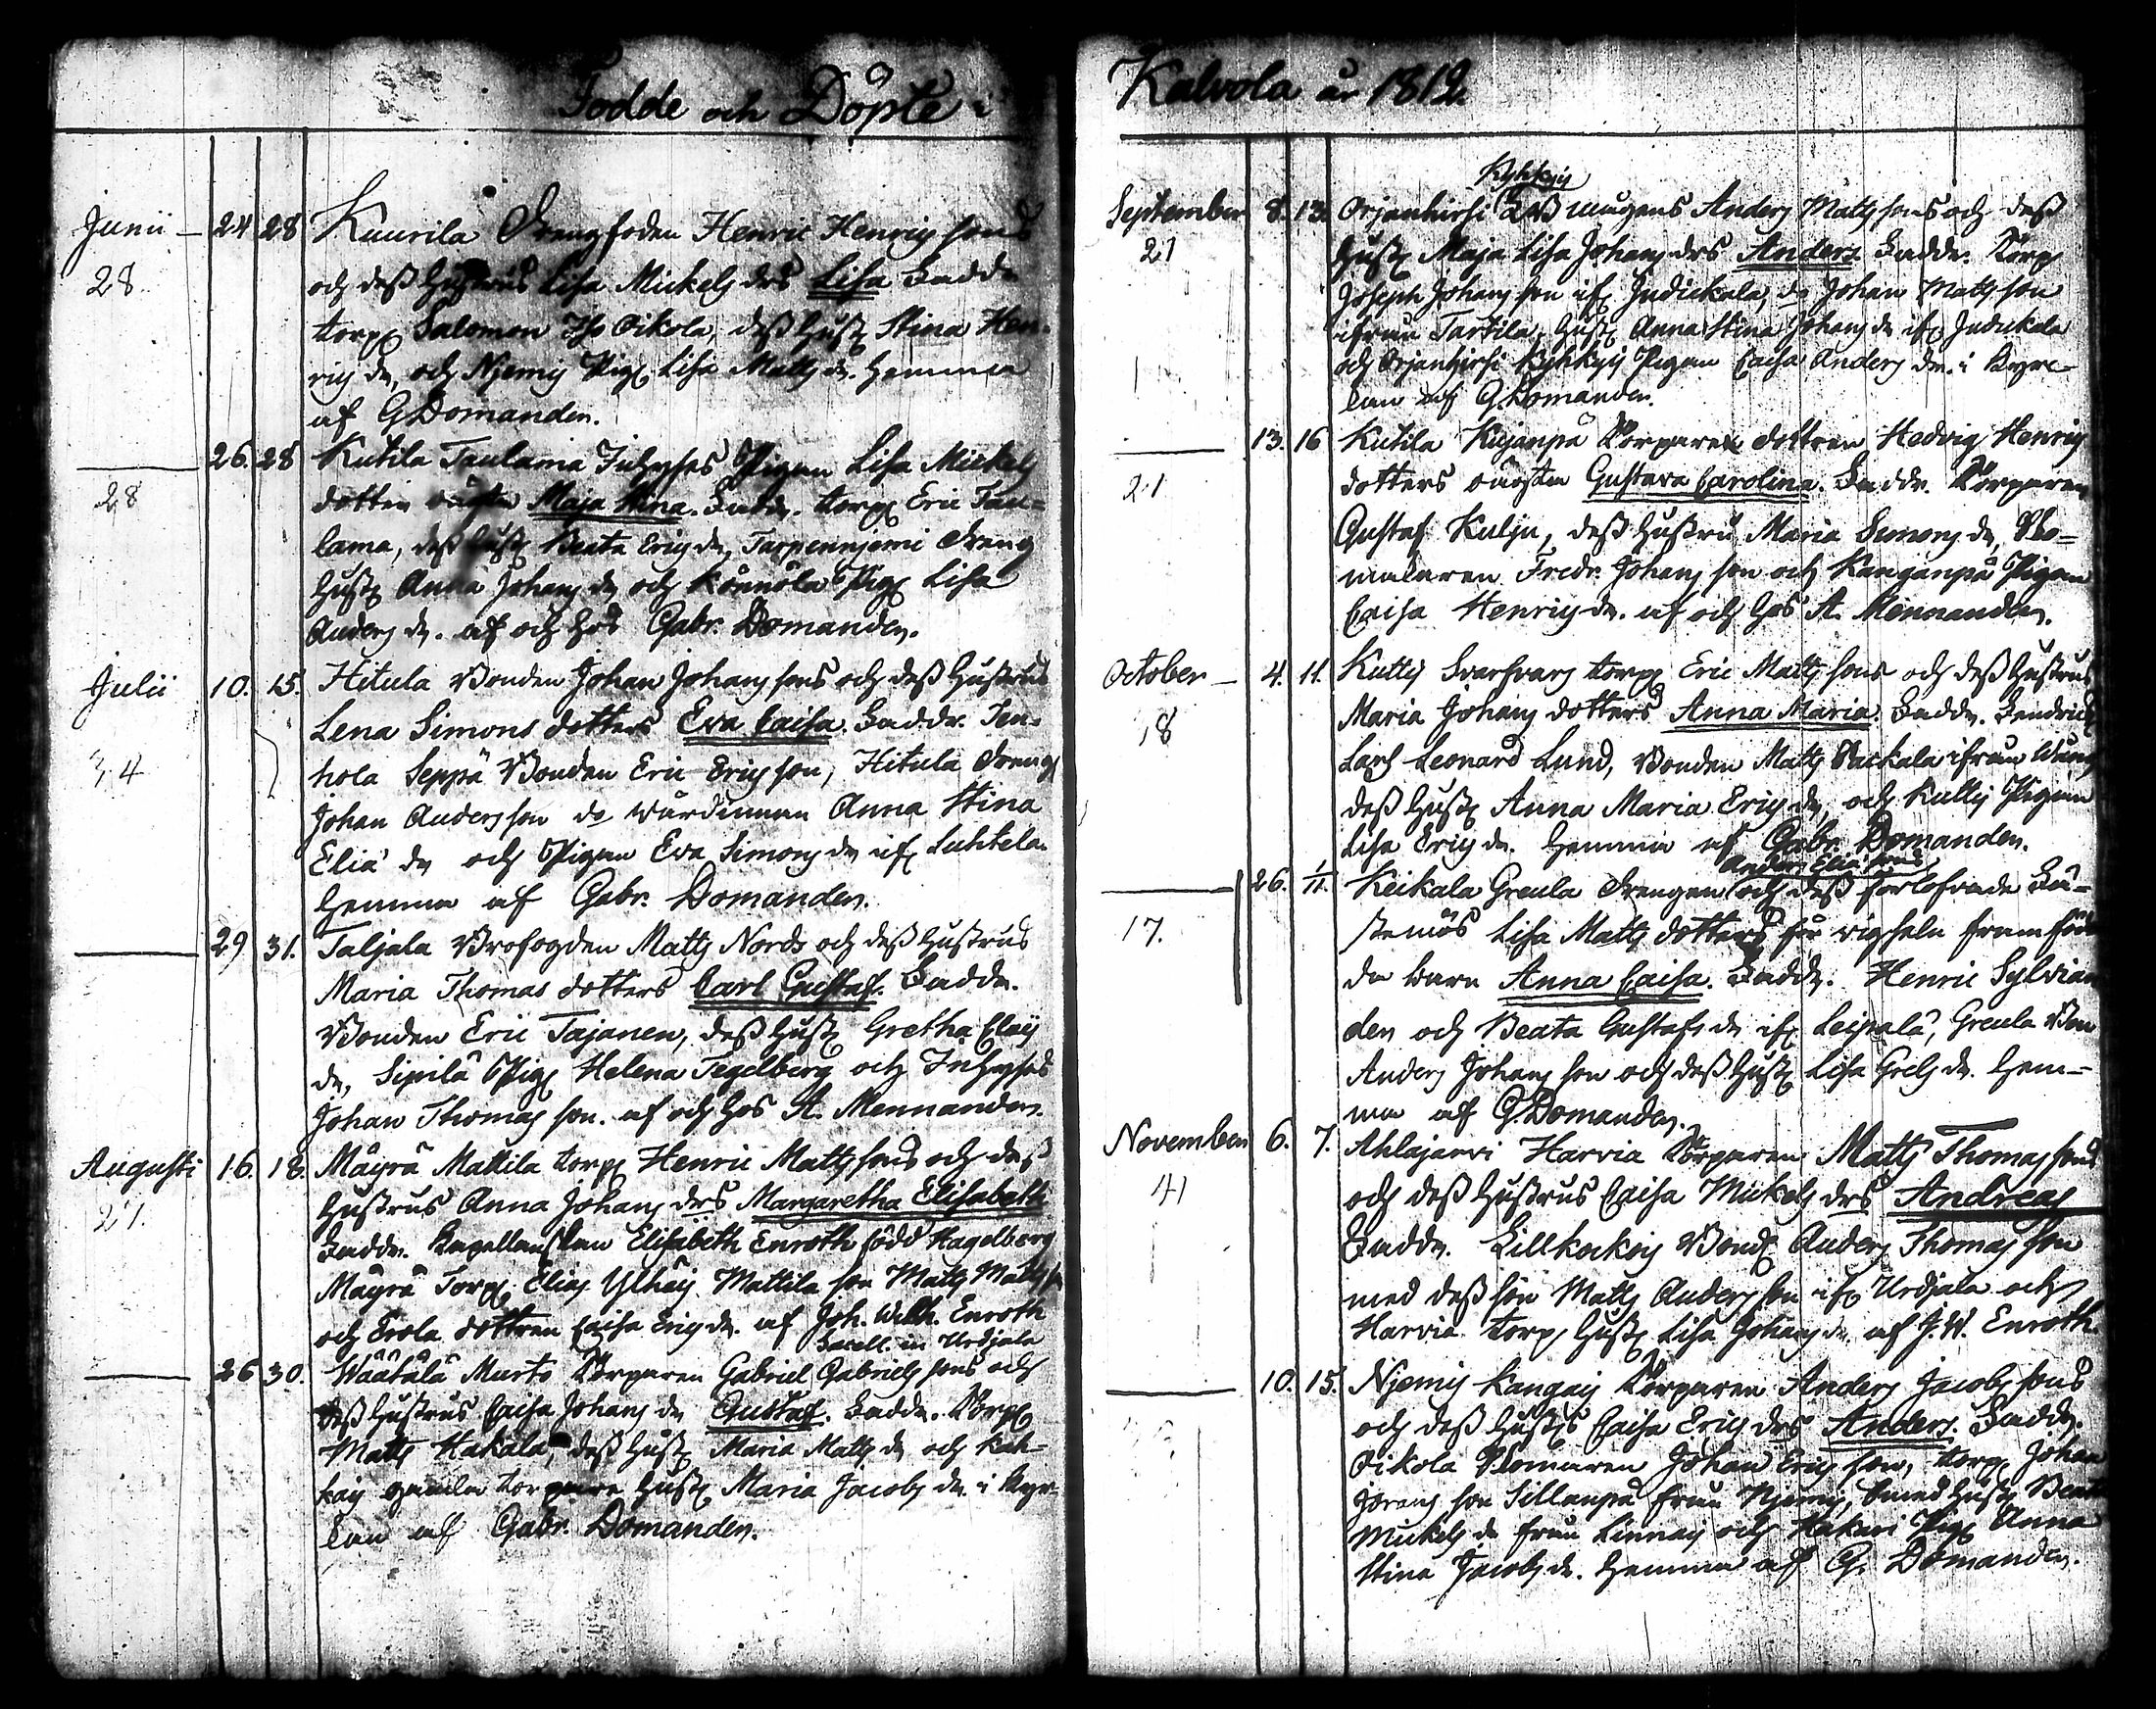 Födde och Döpte i
Junii — 24 28 Kuurila Drengfoden Henric Henrics sons
28. och dess Hustrus Lisa Mickels drs Lisa Faddr.
torp. Salomon Iso Oikola, dess Hust. Stina Hen-
rics dr, och Njemis Pig. Lisa Matts dr. Hemma
af G Domander.
26. 28 Kutila Taulama Inhyses Pigan Lisa Mickels
28 dotters oächta Maja Stina. Faddr. torp. Eric Tau-
lama, dess Hust. Beata Erics dr, Tarpennjemi Dreng
Hust. Anna Johans dr och Könnölä Pig. Lisa
Anders dr. af och hos Gabr. Domander.
Julii 10. 15. Hitula Bonden Johan Johans sons och dess Hustrus
Lena Simons dotters Eva Caisa. Faddr. Ten-
34 hola Seppä Bonden Eric Erics son, Hitula Dreng
Johan Anders son do wärdinnan Anna Stina
Eliæ dr och Pigan Eva Simons dr ifr. Luhtela.
Hemma af Gabr. Domander.
29 31. Taljala Brofogden Matts Nords och dess Hustrus
Maria Thomas dotters Carl Gustaf. Faddr.
Bonden Eric Tajanen, dess Hust. Gretha Claes
dr, Sipilä Pig. Helena Tegelberg och Inhyses
Johan Thomas son. af och hos A. Mennander.
Augusti 16. 18. Mäyrä Mattila torp. Henric Matts sons och dess
27. Hustrus Anna Johans drs Margaretha Elisabeth
Faddr. Capellanskan Elisabeth Enroth född Hagelberg
Mäyrä Torp. Elias Ylhäis Mattila son Matts Matts s.
och Erola dottren Caisa Erics dr. af Joh. Wilh. Enroth
Sacell. in Urdjala
26 30. Wäätälä Murto Torparen Gabriel Gabriels sons och
dess Hustrus Caisa Johans dr Gustaf. Faddr. Torp.
Matts Hakala, dess Hust. Maria Matts dr och Kah-
kais gamla torpare Hust. Maria Jacobs dr i Kyr-
kan af Gabr. Domander.
Kalvola år 1812.
Kyhkyis
September 8. 13. Orjanhirsi mågens Anders Matts sons och dess
21 Hust. Maja Lisa Johans drs Anders Faddr. Torp.
Joseph Johans son ifr. Judickala, do Johan Matts son
ifrån Tarkila, Hust. Anna Stina Johans dr ifr. Judickala
och Orjanhirsi Kyhkyis Pigan Caisa Anders dr. i Kyrc-
kan af G. Domander.
13. 16 Kutila Kujanpä Torpare dottren Hedvig Henrics
21 dotters oächta Gustava Carolina. Faddr. Torparen
Gustaf Kulju, dess Hustru Maria Simons dr, Sko-
makaren Fredr. Johans son och Kanganpä Pigan
Caisa Henrics dr. af och hos A. Mennander.
October — 4. 11. Kuttis Svarfvars torp. Eric Matts sons och dess Hustrus
18 Maria Johans dotters Anna Maria. Faddr. Fendrick
Carl Leonard Lund, Bonden Matts Backala ifrån
dess Hust. Anna Maria Erics dr, och Kuttis Pigan
Lisa Erics dr. Hemma af Gabr. Domander.
Anders Eliæ sons
26. 1/11. Keikala Greula Drengen och dess förlofvade Fä-
17. stemös Lisa Matts dotters för vigseln framföd-
da barn Anna Caisa. Faddr. Henric Sylvian-
der och Beata Gustafs dr ifr. Leipälä, Greula Bon.
Anders Johans son och dess Hust. Lisa Grels dr. Hem-
ma af G. Domander.
November 6. 7. Ahlajärvi Harvia Torparen Matts Thomas sons
41 och dess Hustrus Caisa Mickels drs Andreas
Faddr. Lillkorkois Bond. Anders Thomas son
med dess son Matts Anders son ifr. Urdjala och
Harvia torp. Hust. Lisa Johans dr. af J. W. Enroth.
10. 15. Njemis Kangais Torparen Anders Jacobs sons
och dess Hust:s Caisa Erics drs Anders. Faddr.
Oikola Johan Erics son, torp. Johan
Jörans son Sillanpä från Njemis, Hust. Beata
Mickels dr från Linnais och Hakari Pig. Anna
Stina Jacobs dr. Hemma af G. Domander.